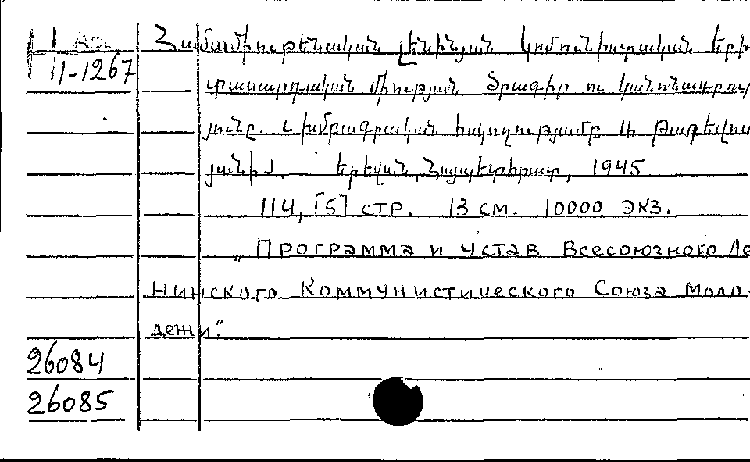 II-1267
Համամիութենական լենինյան կոմունիստական երի-
տասարդական միության ծրագիր ու կանոնադրու-
յունը. Խմբագրական հսկողությամբ Ս. Թադևոս-
յանի. Երեվան, Հայպետհրատ, 1945.
114, [5] стр. 13 см. 10000 экз.
„Программа и устав Всесоюзного Ле
нинского Коммунистического Союза моло-
дежи".
26084
26085